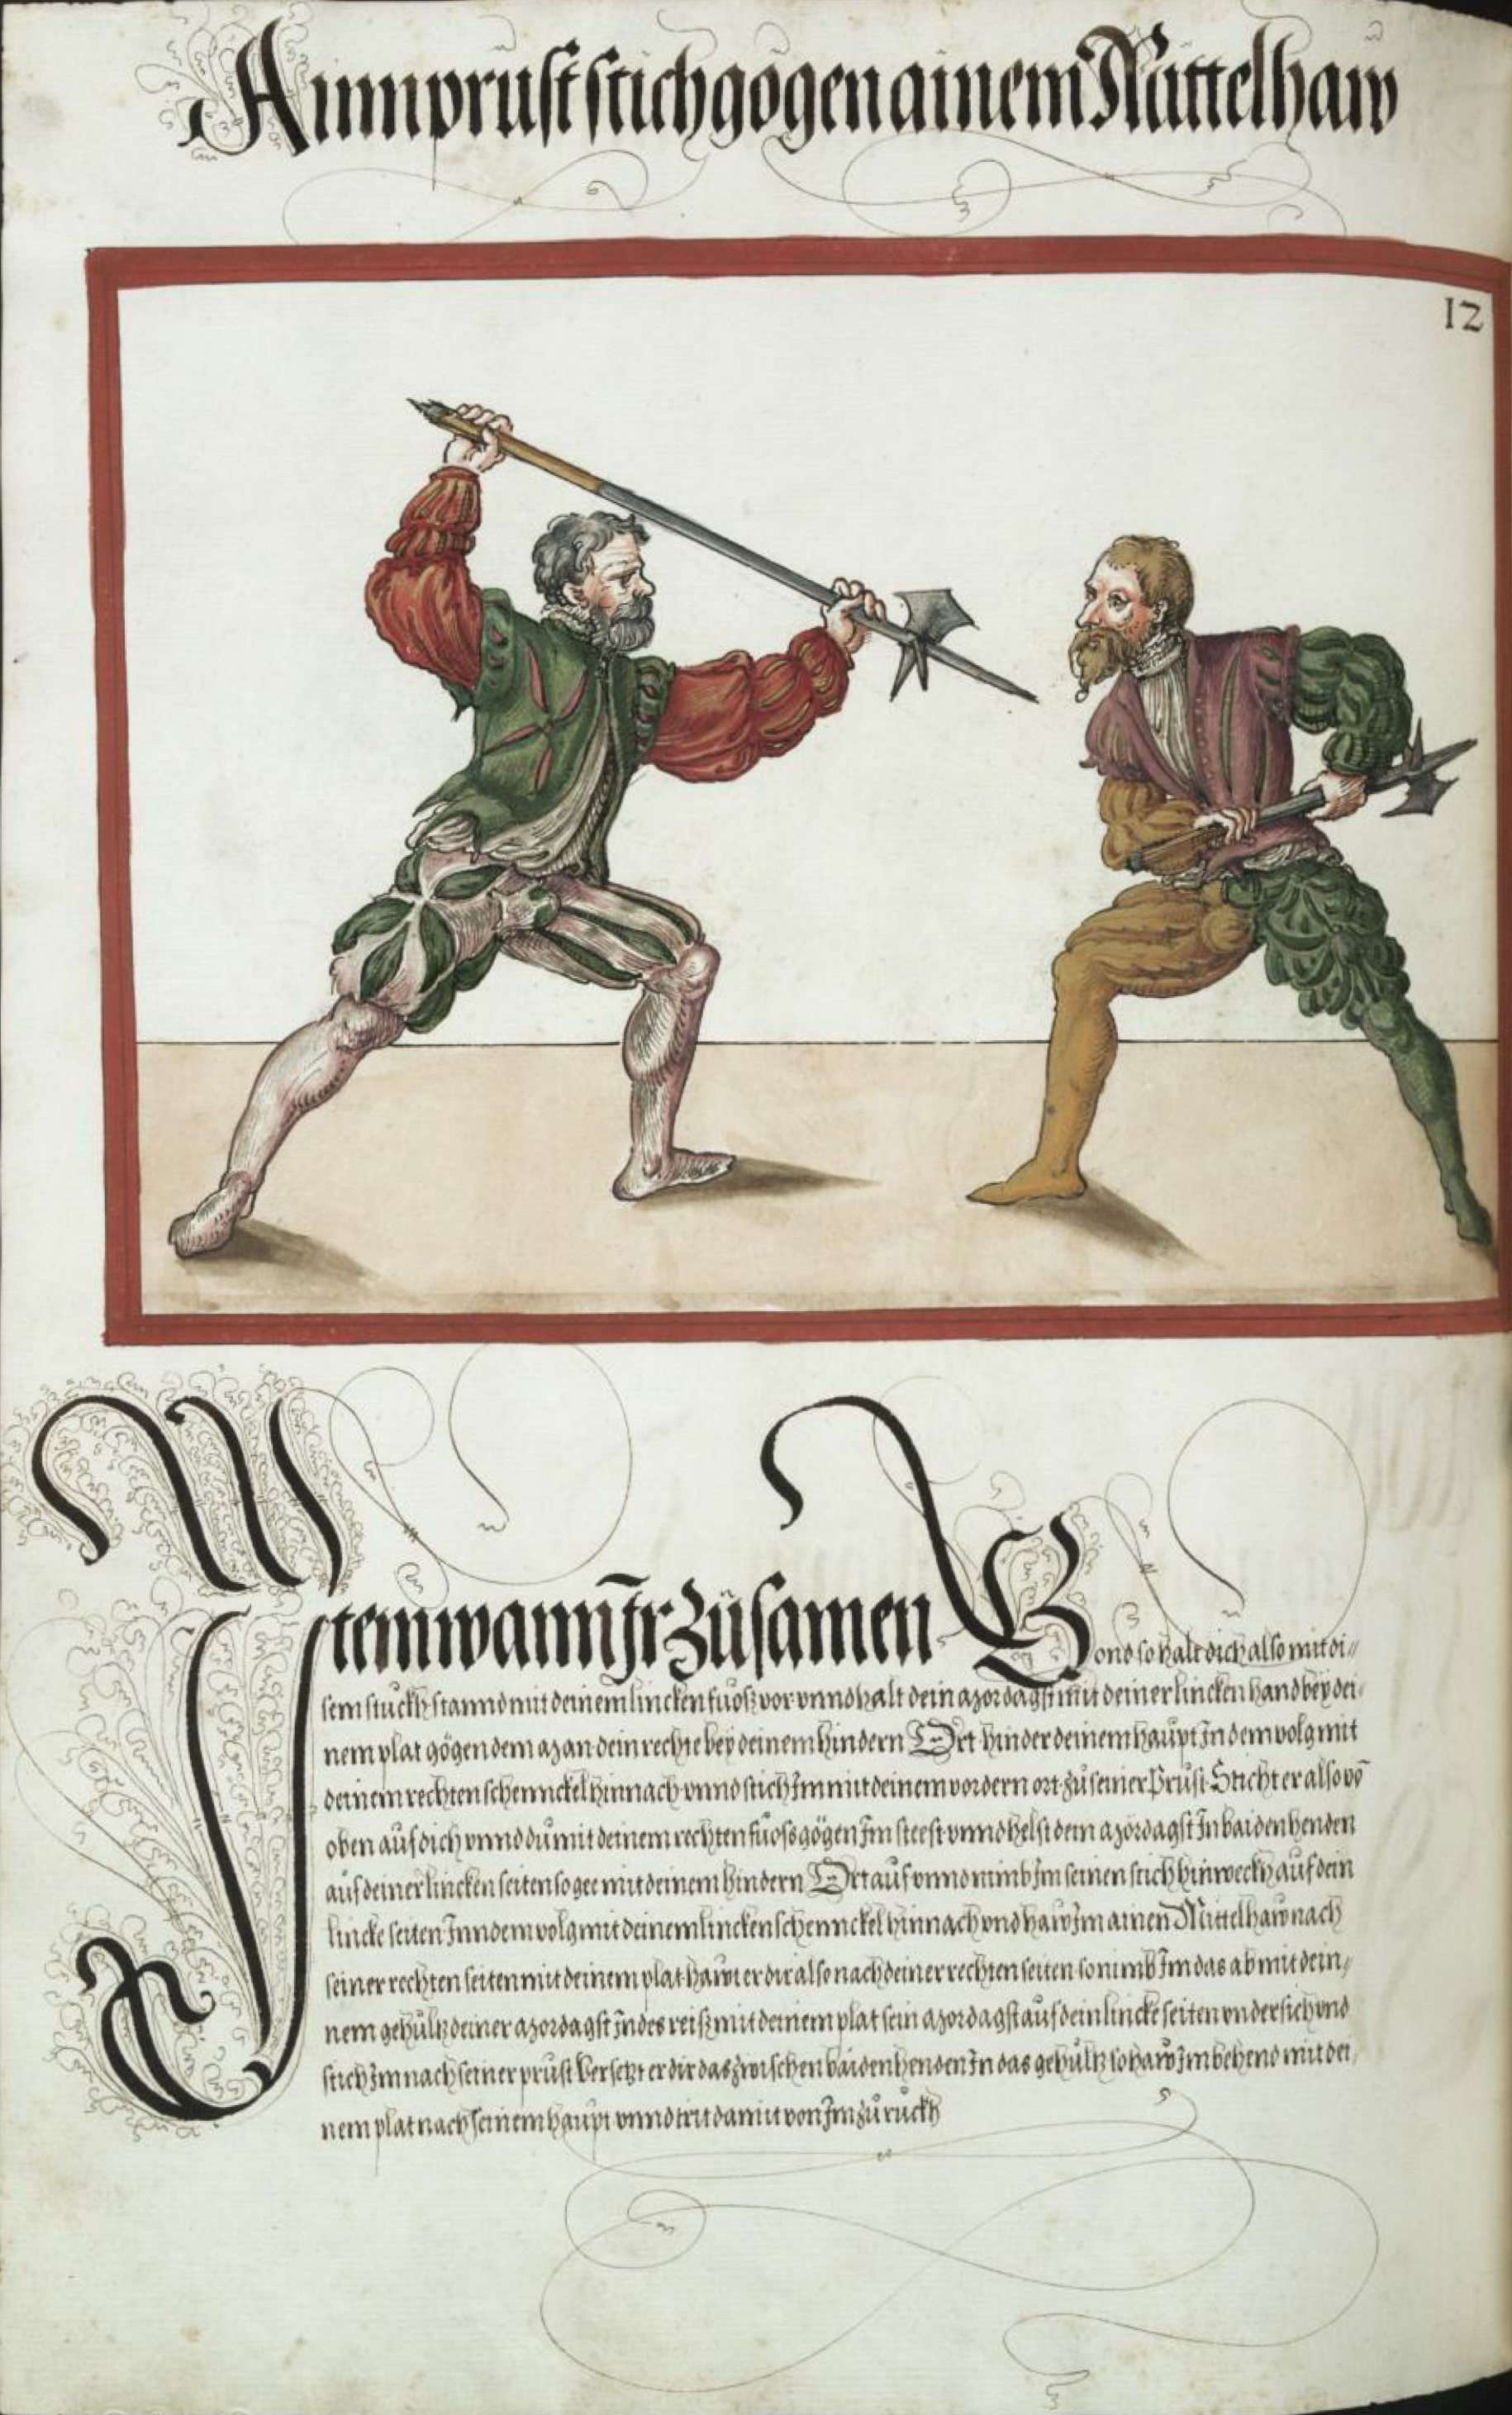 Ainn prust stich gögen ainem Mittelhaw
12
Item wann Ir Zusamen Gond so halt dich also mit di=
sem stuckh stannd mit deinem lincken fuosz vor vnnd halt dein azordagst mit deiner lincken hand bey dei=
nem plat gögen dem azan dein rechte bey deinem hindern Ort hinder deinem haupt In dem volg mit
deinem rechten schennckel hinnach vnnd stich Im mit deinem vordern ort zu seiner Prust Sticht er also vō
oben auf dich vnnd du mit deinem rechten fuoss gögen Im steest vnnd helst dein azordagst In baiden henden
auf deiner lincken seiten so gee mit deinem hindern Ort auf vnnd nimb Im seinen stich hinweckh auf dein
lincke seiten Inn dem volg mit deinem lincken schennckel hinnach vnd haw Im ainen Mittelhaw nach
seiner rechten seiten mit deinem plat hawt er dir also nach deiner rechten seiten so nimb Im das ab mit dein=
nem gehültz deiner azordagst Indes reisz mit deinem plat sein azordagst auf dein lincke seiten vndersich vnd
stich Im nach seiner prust Versetzt er dir das zwischen baiden henden In das gehültz so haw Im behend mit dei=
nem plat nach seinem haupt vnnd trit damit von Im zu ruckh